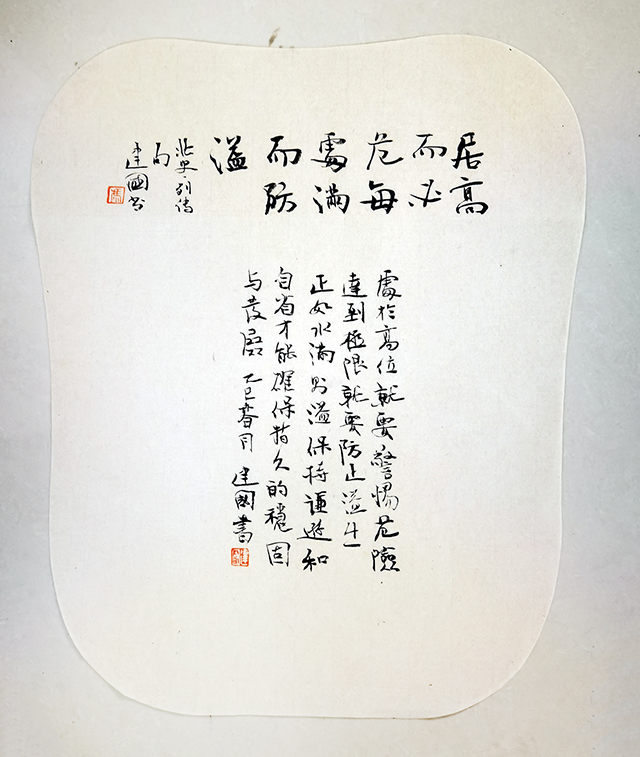 居高
而必
危每
處滿
而防
溢
北史·列传
句
建國书
處於高位就要警惕危險
達到極限就要防止溢出
正如水滿则溢保持谦遜和
自省才能確保持久的穩固
与發展 乙巳春月 建國書